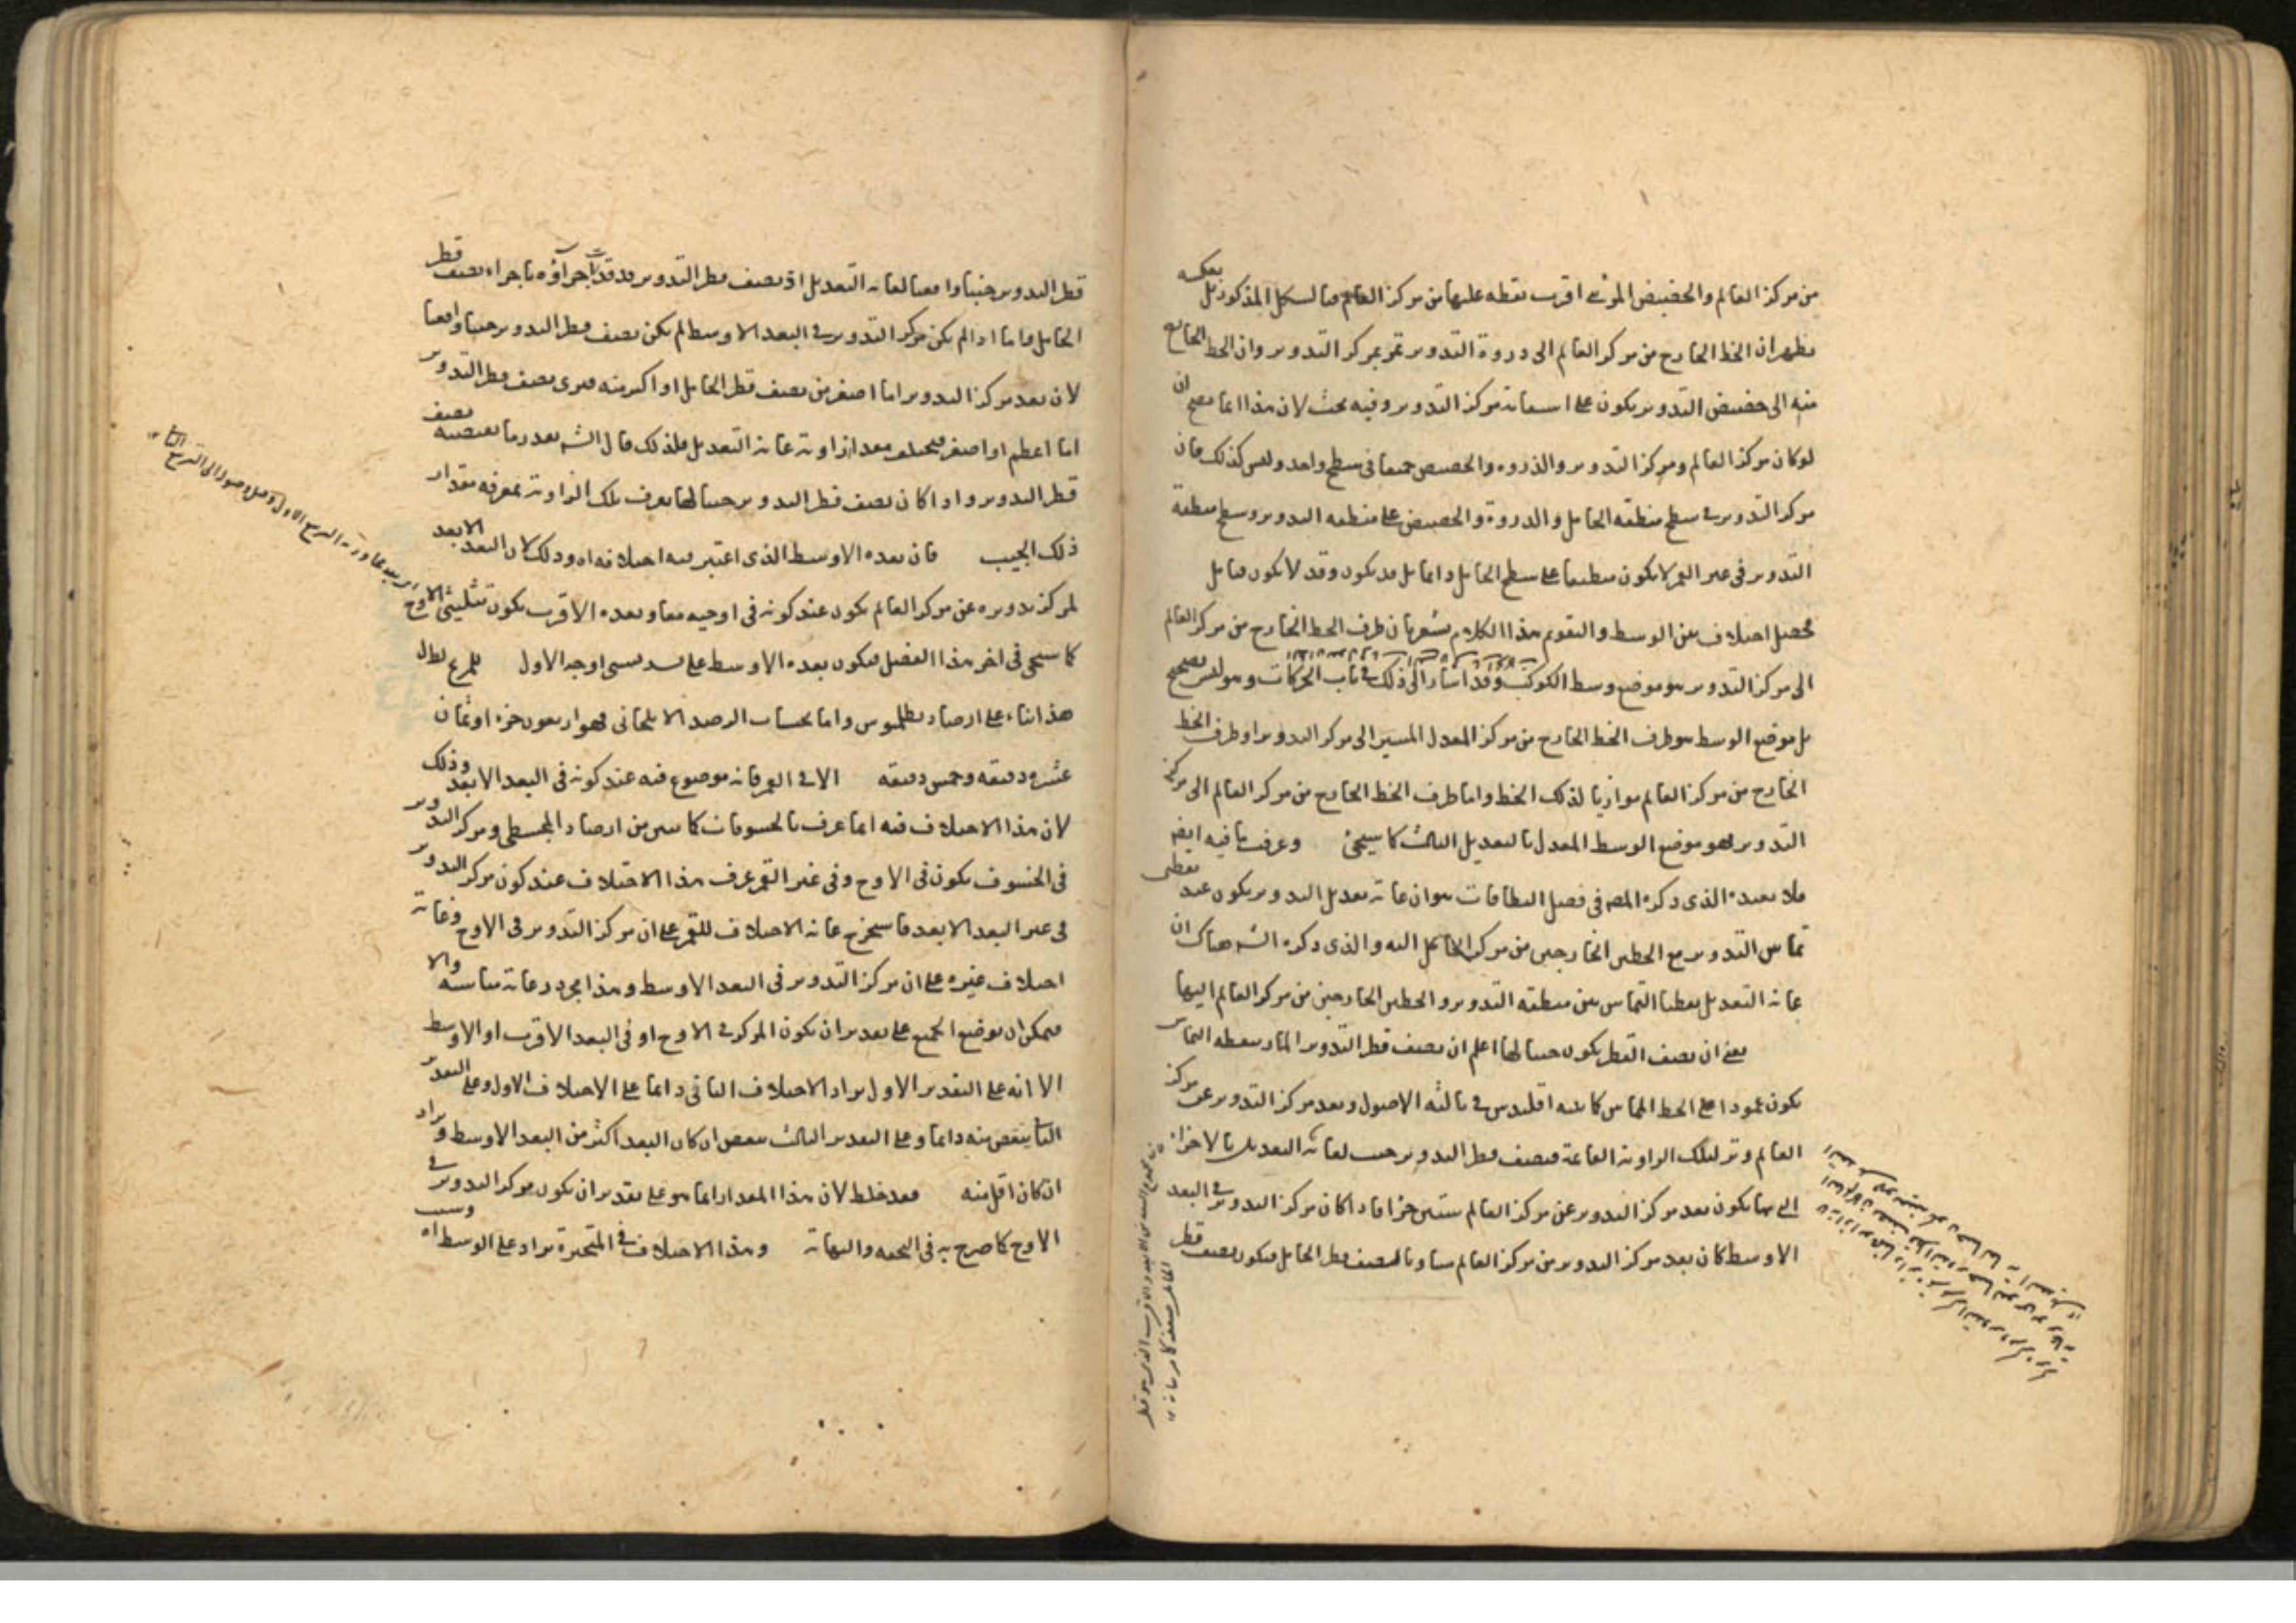 من مركز العالم والحضيض المرئى اقرب نقطة عليها من مركز العالم فالشكل المذكور بعكسه
فظهر ان الخط الخارج من مركز العالم الى ذروة التدوير تمر بمركز التدوير وان الخط الخارج
منه الى حضيض التدوير يكون على استقامة مركز التدوير وفيه بحث لان هذا انما يصح ان
لو كان مركز العالم ومركز التدوير والذروة والحضيض جميعا فى سطح واحد وليس كذلك فان
مركز التدوير فى سطح منطقة الحامل والذروة والحضيض على منطقة التدوير وسطح منطقة
التدوير فى غير القمر لا يكون منطبقا على سطح الحامل دائما بل قد يكون وقد لا يكون
فحصل اختلاف بين الوسط والتقويم هذا الكلام يشعر بان طرف الخط الخارج من مركز العالم
الى مركز التدوير هو موضع وسط الكوكب وقد اشار الى ذلك فى باب الحركات وهو ليس بصحيح
بل موضع الوسط هو طرف الخط الخارج من مركز المعدل المسير الى مركز التدوير او طرف الخط
الخارج من مركز العالم موازيا لذلك الخط واما طرف الخط الخارج من مركز العالم الى مركز
التدوير فهو موضع الوسط المعدل بالتعديل الثالث كما سيجئ وعرفت ما فيه ايضا
فلا نعيده الذى ذكره المص فى فصل النطاقات هو ان غاية تعديل التدوير يكون عند نقطتى
تماس التدوير مع الخطين الخارجين من مركز الحامل اليه والذى ذكره الشه هناك ان
غاية التعديل نقطتا التماس بين منطقة التدوير والخطين الخارجين من مركز العالم اليها
يعنى ان نصف القطر يكون جيبا لها اعلم ان نصف قطر التدوير المار بنقطة التماس
يكون عمودا على الخط المماس كما بينه اقليدس فى ثالثة الاصول وبعد مركز التدوير عن مركز
العالم وتر لتلك الزاوية القائمة فنصف قطر التدوير جيب لغاية التعديل بالاجزاء
التى بها يكون بعد مركز التدوير عن مركز العالم ستين جزءا فاذا كان مركز التدوير فى البعد
الاوسط كان بعد مركز التدوير من مركز العالم مساويا لنصف قطر الحامل فيكون نصف قطر
قطر التدوير جيبا وافيا لغاية التعديل اذ نصف قطر التدوير قد قدرت اجزاؤه باجزاء نصف قطر
الحامل واما اذا لم يكن مركز التدوير فى البعد الاوسط لم يكن نصف قطر التدوير جيبا وافيا
لان بعد مركز التدوير اما اصغر من نصف قطر الحامل او اكبر منه فيرى نصف قطر التدوير
اما اعظم او اصغر فيختلف مقدار زاوية غاية التعديل فلذلك قال الشه بقدر ما يقتضيه نصف
قطر التدوير واذا كان نصف قطر التدوير جيبا لها يعرف تلك الزاوية بمعرفة مقدار
ذلك الجيب فان بعده الاوسط الذى اعتبر فيه اختلافه اه وذلك لان البعد الابعد
لمركز تدويره عن مركز العالم يكون عند كونه فى اوجيه معا وبعده الاقرب يكون تثليثى الاوج
كما سيجئ فى اخر هذا الفصل فيكون بعده الاوسط على تسديسى اوجه الاول
هذا بناء على ارصاد بطلميوس واما بحساب الرصد الايلخانى فهو اربعون جزء او ثمان
عشرة دقيقة وخمس دقيقة الا فى القمر فانه موضوع فيه عند كونه فى البعد الابعد وذلك
لان هذا الاختلاف فيه انما عرف بالخسوفات كما تبين من ارصاد المجسطى ومركز التدوير
فى الخسوف يكون فى الاوج وفى غير القمر عرف هذا الاختلاف عند كون مركز التدوير
فى غير البعد الابعد فاستخرج غاية الاختلاف للقمر على ان مركز التدوير فى الاوج وغاية
اختلاف غيره على ان مركز التدوير فى البعد الاوسط وهذا مجرد رعاية مناسبة والا
فيمكن ان يوضع الجميع على تقدير ان يكون المركز فى الاوج او فى البعد الاقرب او الاوسط
الا انه على التقدير الاول يزاد الاختلاف الثانى دائما على الاختلاف الاول وعلى التقدير
الثانى ينقص منه دائما وعلى التقدير الثالث ينقص ان كان البعد اكثر من البعد الاوسط ويزاد
ان كان اقل منه فقد خلط لان هذا المقدار انما هو على تقدير ان يكون مركز التدوير فى
الاوج كما صرح به فى التحفة والنهاية وهذا الاختلاف فى المتحيرة يزاد على الوسط اه